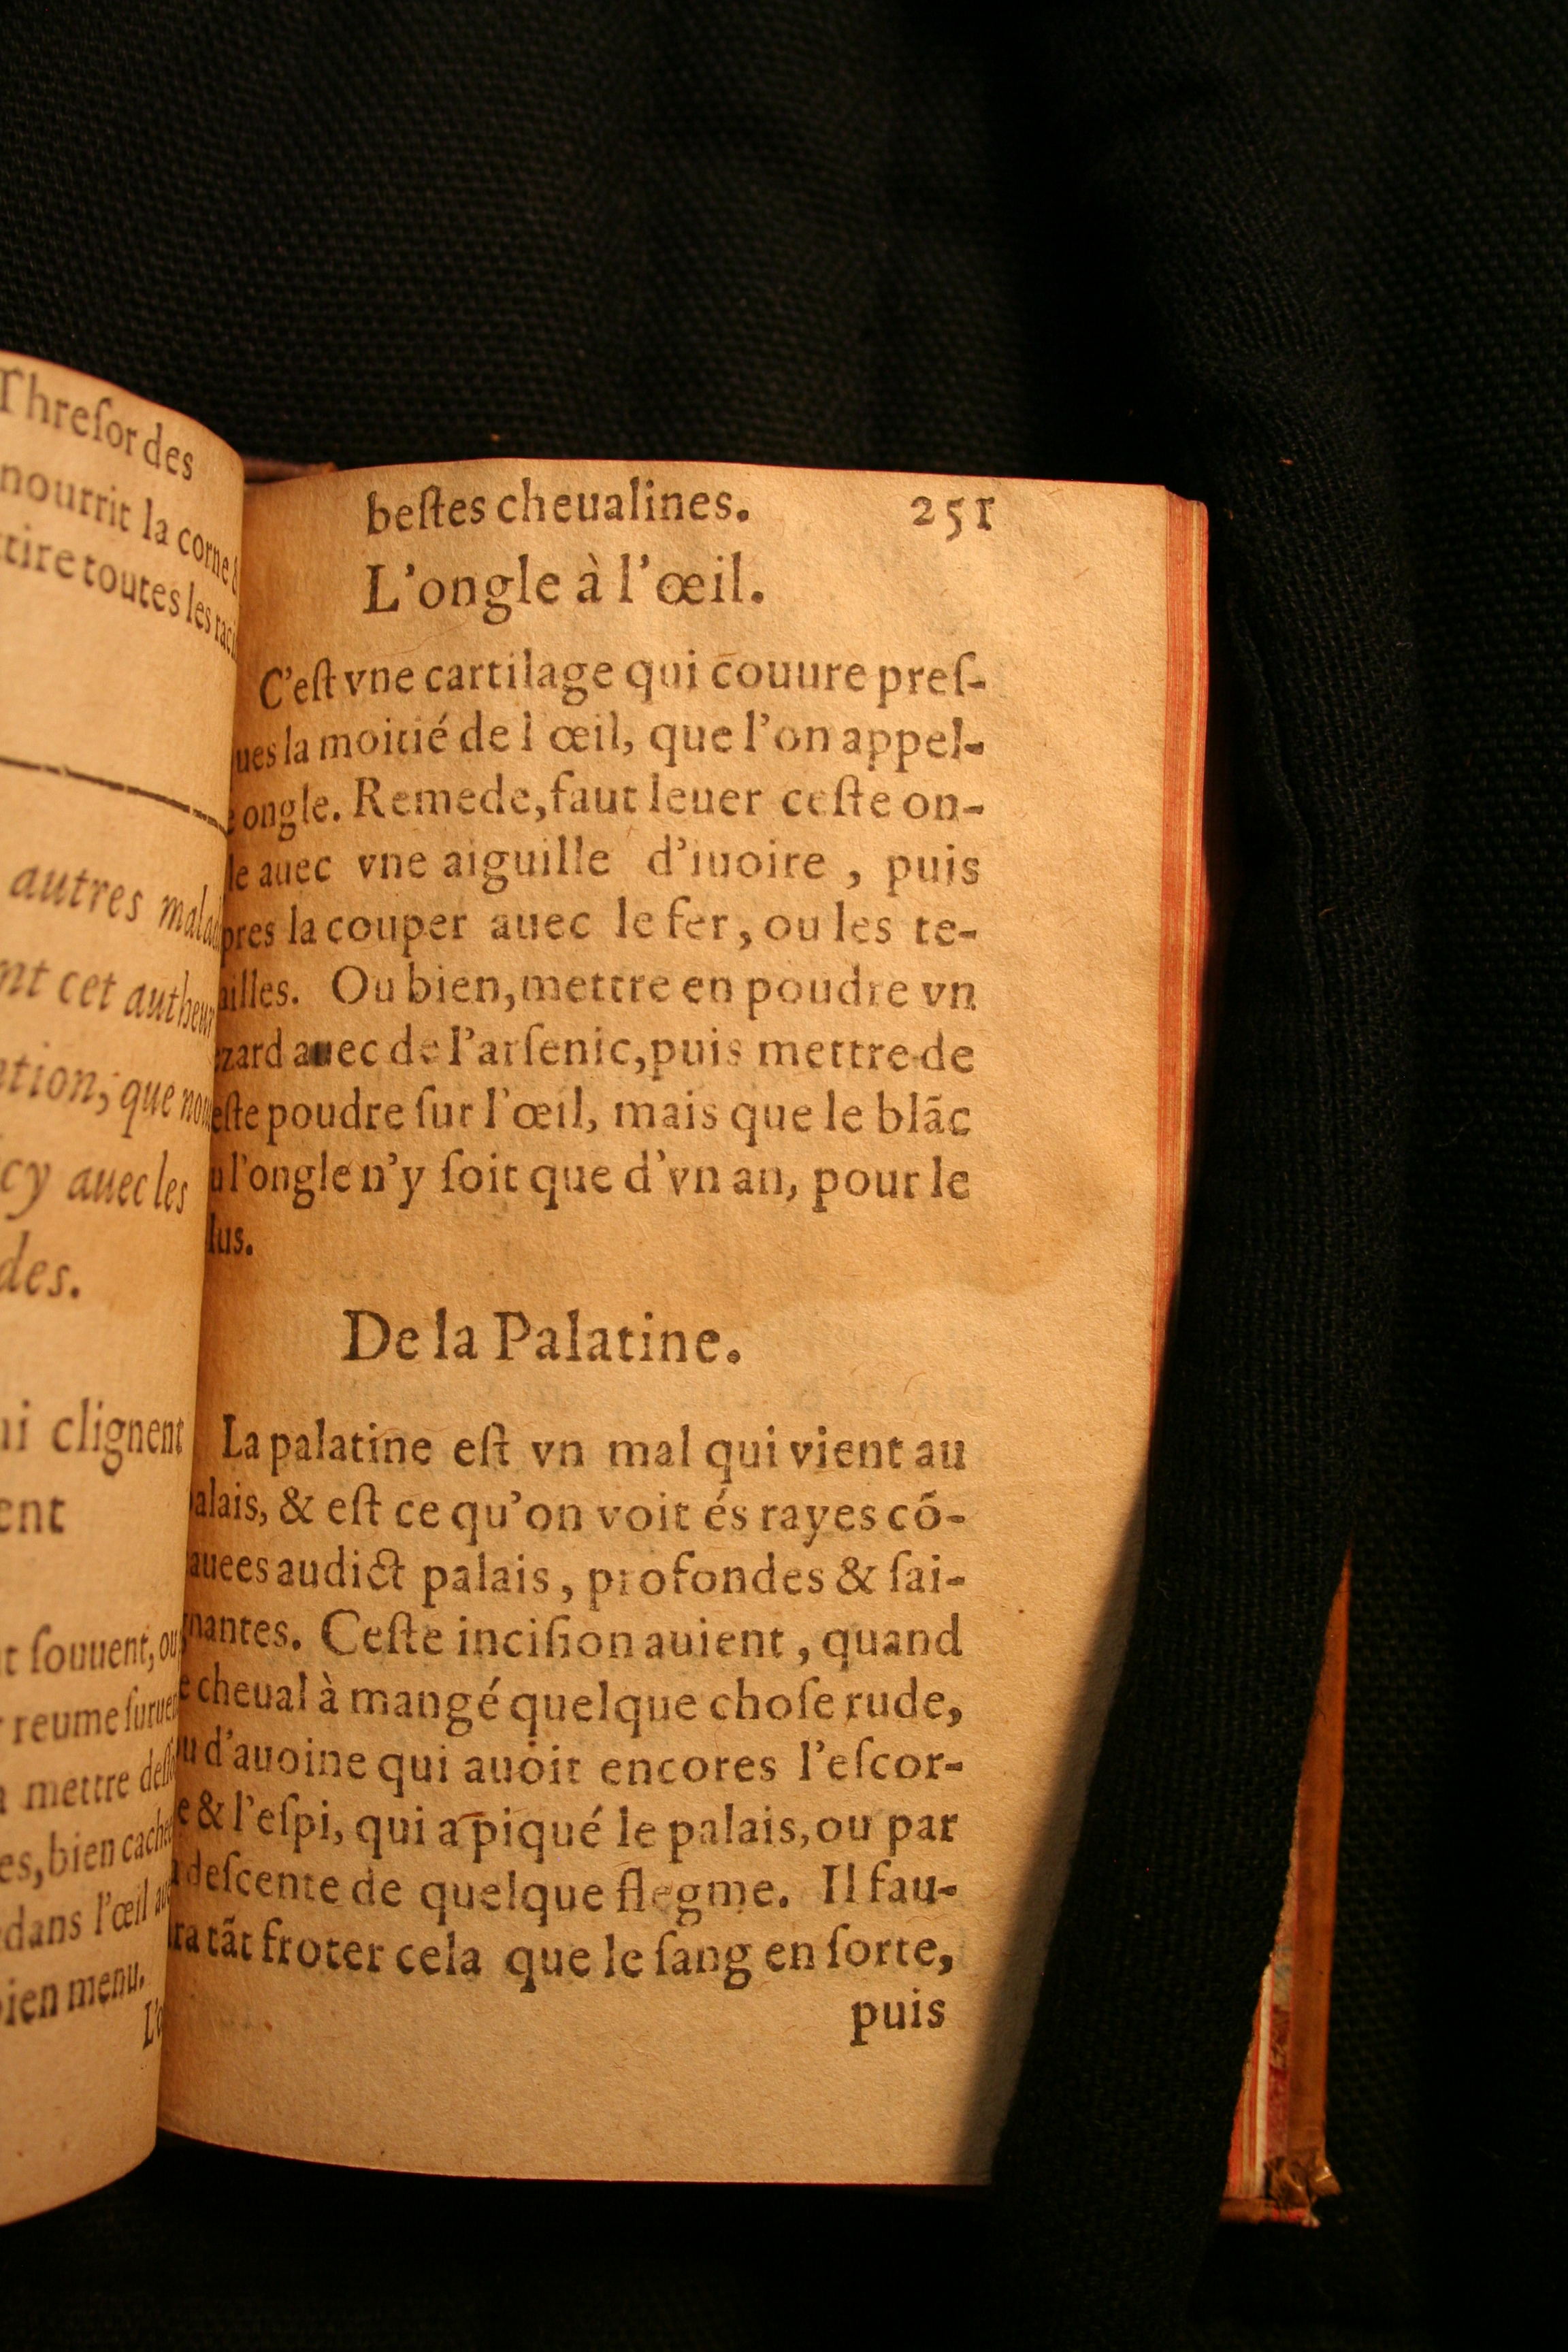 Threſor des
nourrit la corne
toutes les
autres
cet autheur
que
cy auec les
clignent
ſouuent,
reume
mettre
bien
dans l'œil
bien menu.
beſtes cheualines. 251
L'ongle à l'œil.
C'eſt vne cartilage qui couure preſ-
ues la moitié de l œil, que l'on appel-
e ongle. Remede, faut leuer ceſte on-
le auec vne aiguille d'iuoire , puis
pres la couper auec le fer, ou les te-
ailles. Ou bien, mettre en poudre vn
zard auec de l'arſenic, puis mettre de
eſte poudre ſur l'œil, mais que le blãc
u l'ongle n'y ſoit que d'vn an, pour le
lus.
De la Palatine.
La palatine eſt vn mal qui vient au
alais, & eſt ce qu'on voit és rayes cõ-
auees audict palais, profondes & ſai-
nantes. Ceſte inciſion auient, quand
e cheual à mangé quelque choſe rude,
u d'auoine qui auoit encores l'eſcor-
e & l'eſpi, qui a piqué le palais, ou par
deſcente de quelque flegme. Il fau-
ra tãt froter cela que le ſang en ſorte,
puis